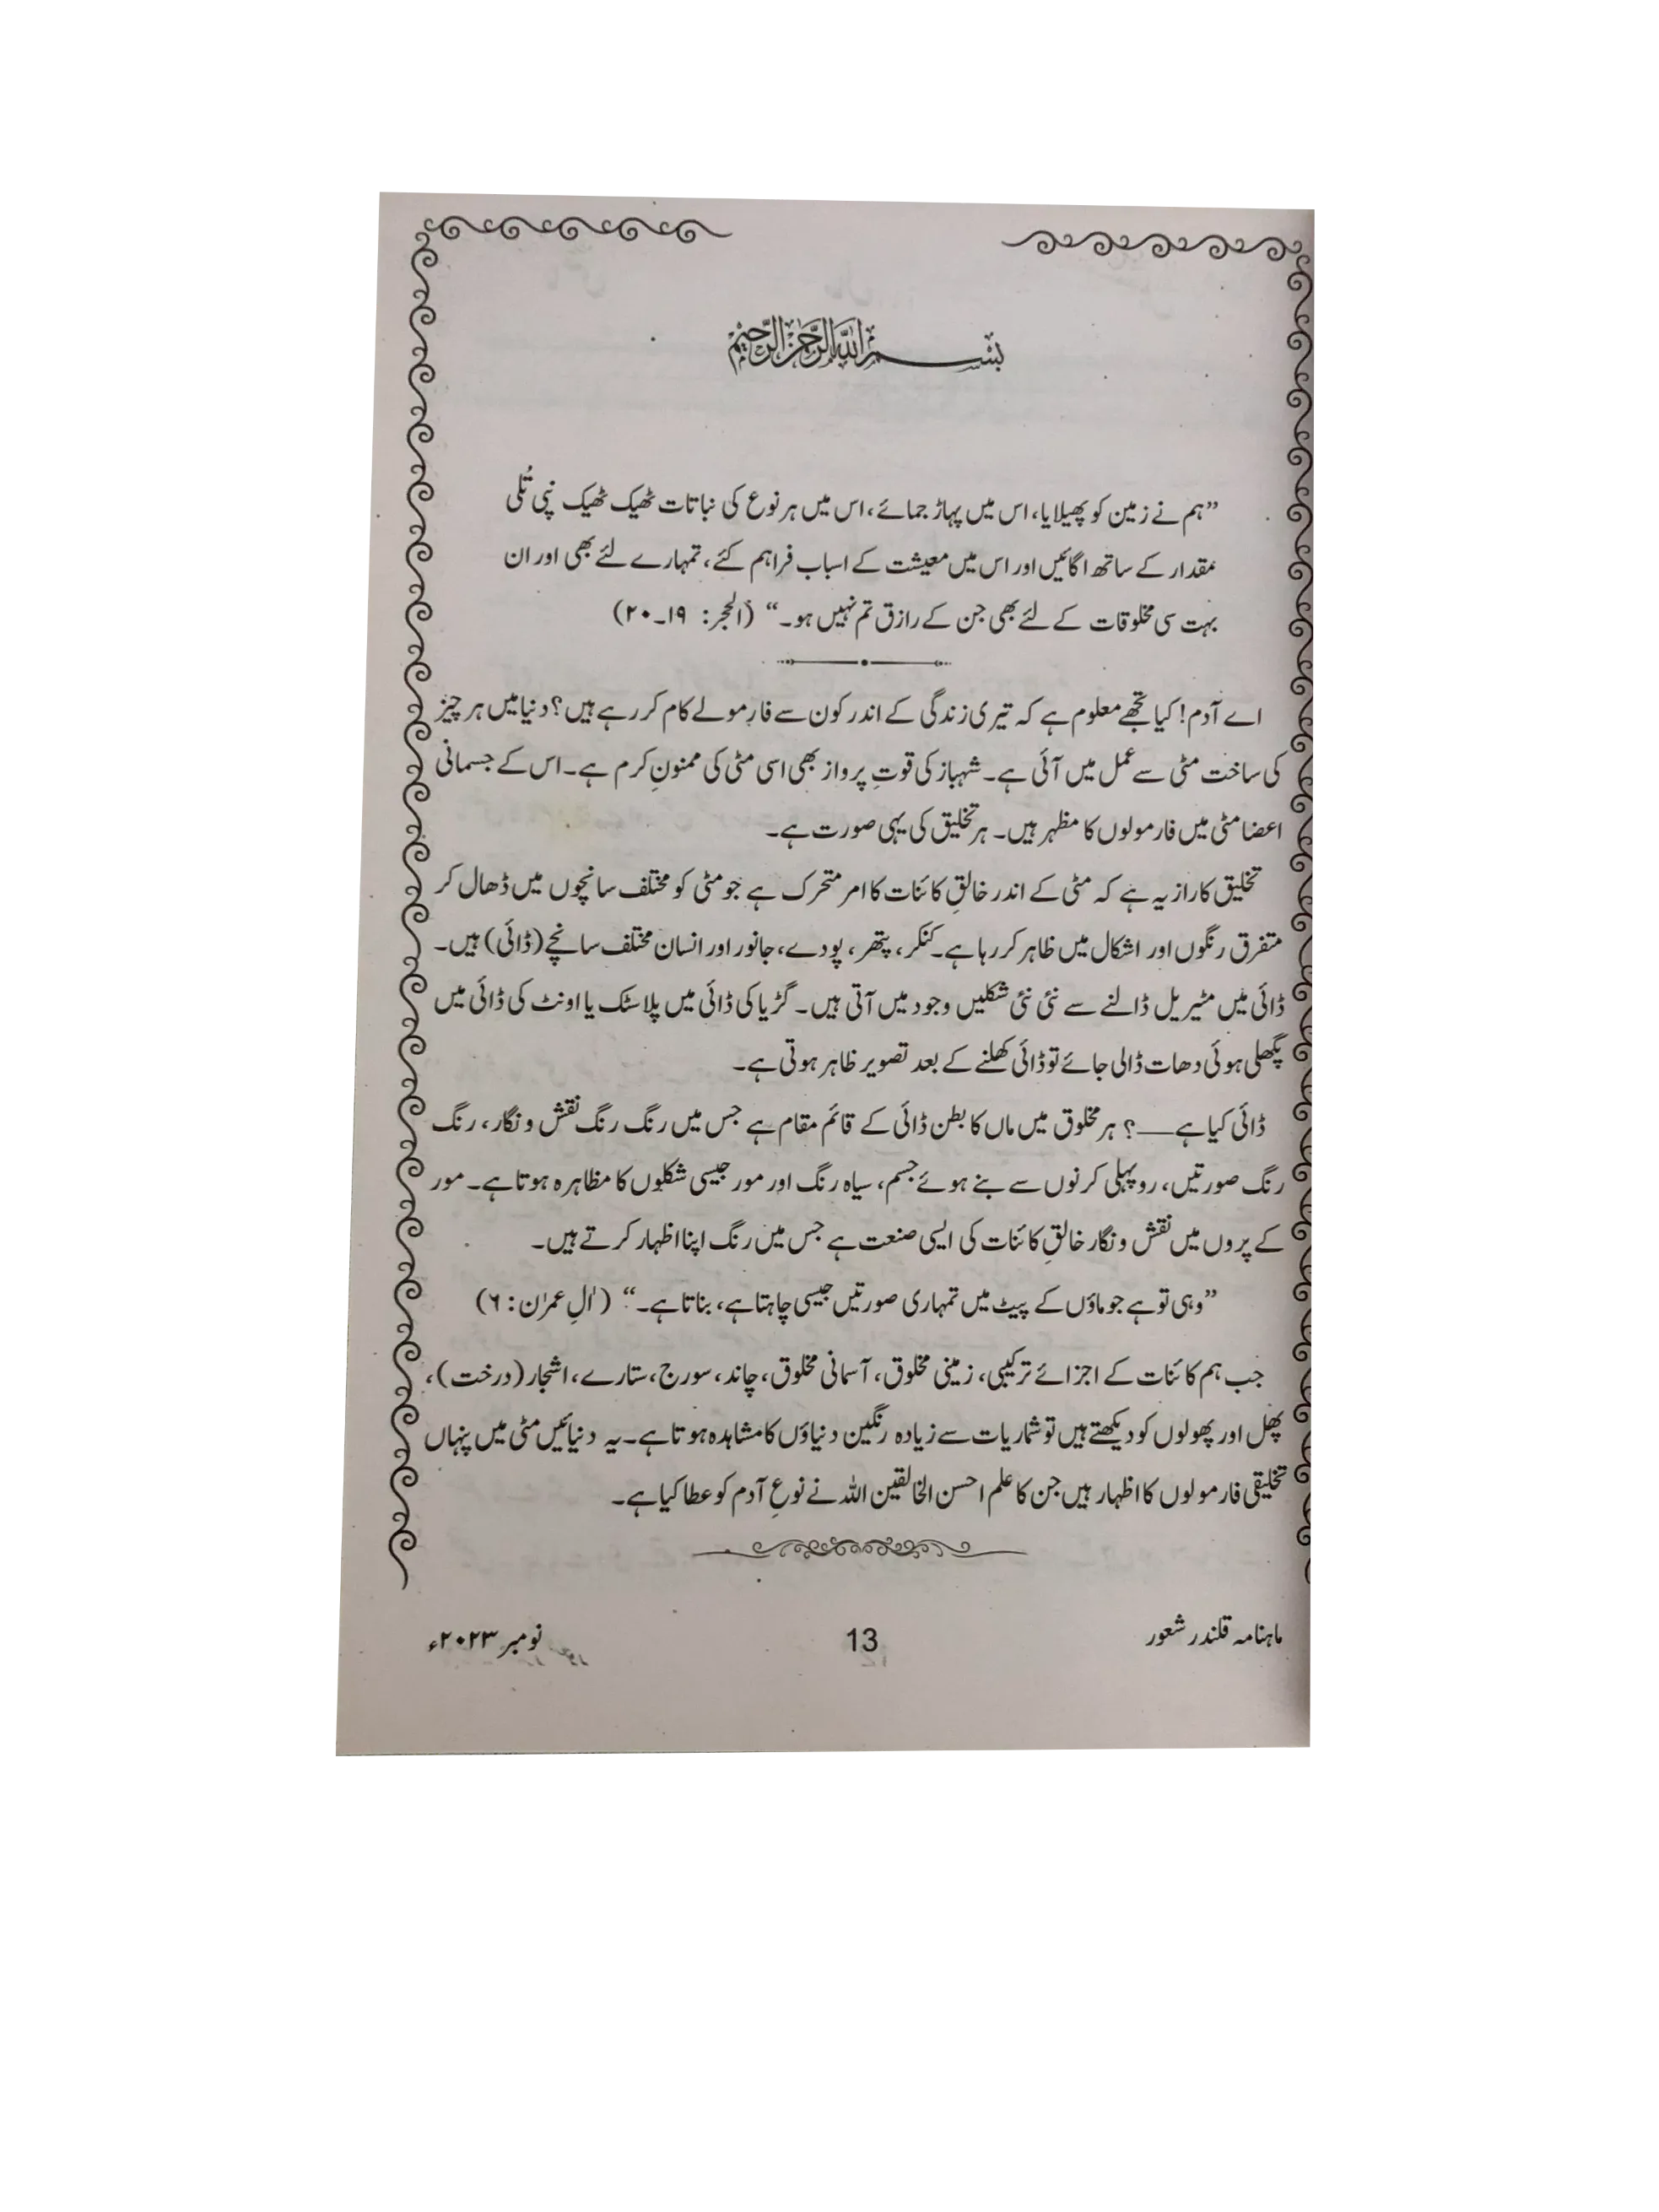 بسم اللہ الرحمن الرحیم
”ہم نے زمین کو پھیلایا، اس میں پہاڑ جمائے، اس میں ہر نوع کی نباتات ٹھیک ٹھیک نپی تُلی
مقدار کے ساتھ اگائیں اور اس میں معیشت کے اسباب فراہم کئے، تمہارے لئے بھی اور ان
بہت سی مخلوقات کے لئے بھی جن کے رازق تم نہیں ہو۔“ (الحجر: ۱۹۔۲۰)
اے آدم! کیا تجھے معلوم ہے کہ تیری زندگی کے اندر کون سے فارمولے کام کر رہے ہیں؟ دنیا میں ہر چیز
کی ساخت مٹی سے عمل میں آئی ہے۔ شہباز کی قوتِ پرواز بھی اسی مٹی کی ممنونِ کرم ہے۔ اس کے جسمانی
اعضا مٹی میں فارمولوں کا مظہر ہیں۔ ہر تخلیق کی یہی صورت ہے۔
تخلیق کا راز یہ ہے کہ مٹی کے اندر خالقِ کائنات کا امر متحرک ہے جو مٹی کو مختلف سانچوں میں ڈھال کر
متفرق رنگوں اور اشکال میں ظاہر کر رہا ہے۔ کنکر، پتھر، پودے، جانور اور انسان مختلف سانچے (ڈائی) ہیں۔
ڈائی میں مٹیریل ڈالنے سے نئی نئی شکلیں وجود میں آتی ہیں۔ گڑیا کی ڈائی میں پلاسٹک یا اونٹ کی ڈائی میں
پگھلی ہوئی دھات ڈالی جائے تو ڈائی کھلنے کے بعد تصویر ظاہر ہوتی ہے۔
ڈائی کیا ہے__؟ ہر مخلوق میں ماں کا بطن ڈائی کے قائم مقام ہے جس میں رنگ رنگ نقش و نگار، رنگ
رنگ صورتیں، روپہلی کرنوں سے بنے ہوئے جسم، سیاہ رنگ اور مور جیسی شکلوں کا مظاہرہ ہوتا ہے۔ مور
کے پروں میں نقش و نگار خالقِ کائنات کی ایسی صنعت ہے جس میں رنگ اپنا اظہار کرتے ہیں۔
”وہی تو ہے جو ماؤں کے پیٹ میں تمہاری صورتیں جیسی چاہتا ہے، بناتا ہے۔“ (اٰلِ عمرٰن: ۶)
جب ہم کائنات کے اجزائے ترکیبی، زمینی مخلوق، آسمانی مخلوق، چاند، سورج، ستارے، اشجار (درخت)،
پھل اور پھولوں کو دیکھتے ہیں تو شماریات سے زیادہ رنگین دنیاؤں کا مشاہدہ ہوتا ہے۔ یہ دنیائیں مٹی میں پنہاں
تخلیقی فارمولوں کا اظہار ہیں جن کا علم احسن الخالقین اللہ نے نوعِ آدم کو عطا کیا ہے۔
ماہنامہ قلندر شعور 13 نومبر ۲۰۲۳ء